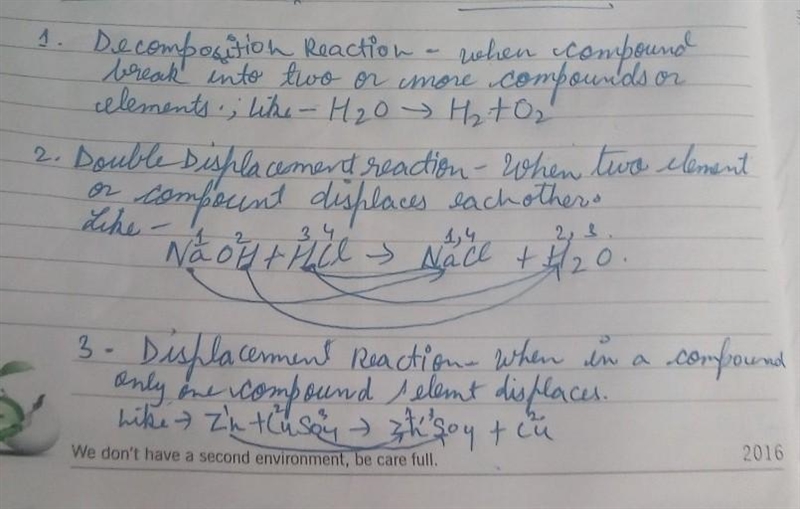 1. Decomposition Reaction - when compound
break into two or more compounds or
elements.; like - H2O → H2 + O2
2. Double Displacement reaction - When two element
or compount displaces each other.
Like -
1 2 3 4 1,4 2, 3.
NaOH + HCl → NaCl + H2O.
3 - Displacement Reaction - When in a compound
only one compound / elemt displaces.
Like → Zn + CuSO4 → ZnSO4 + Cu
We don't have a second environment, be care full. 2016